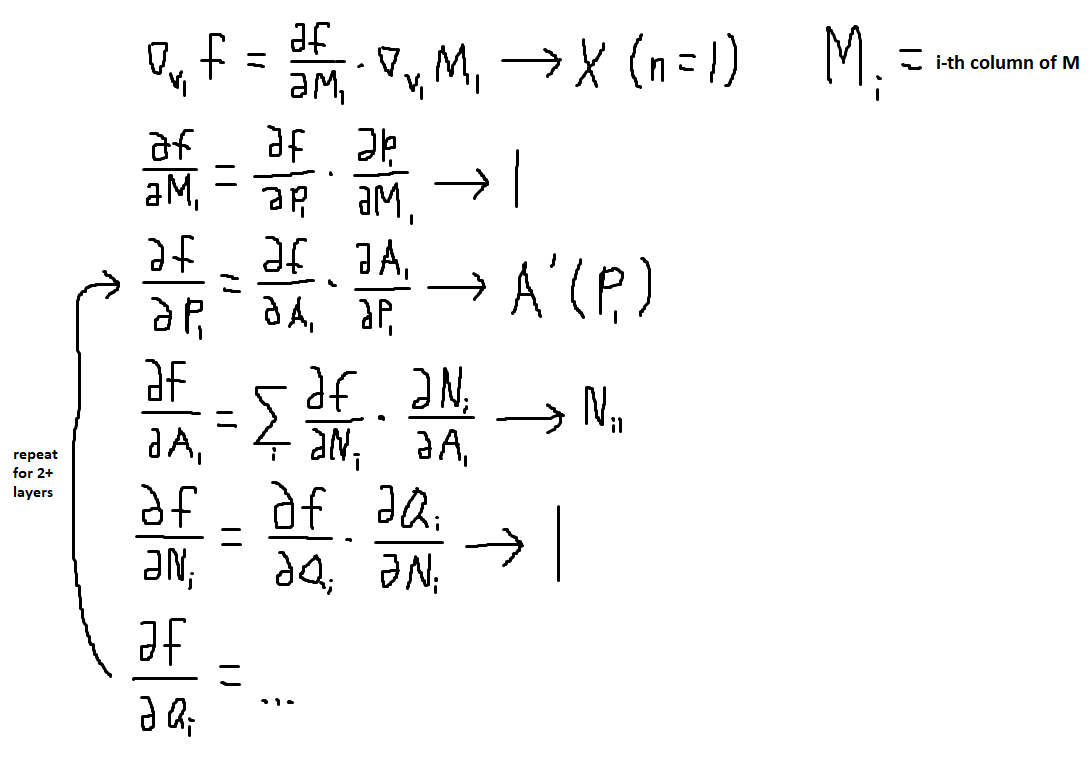 ∇ᵥ₁ f = ∂f/∂M₁ · ∇ᵥ₁ M₁ → X (n=1)    Mᵢ = i-th column of M
∂f/∂M₁ = ∂f/∂P₁ · ∂P₁/∂M₁ → 1
∂f/∂P₁ = ∂f/∂A₁ · ∂A₁/∂P₁ → A'(P₁)
∂f/∂A₁ = ∑ᵢ ∂f/∂Nᵢ · ∂Nᵢ/∂A₁ → Nᵢ₁
repeat
for 2+
layers
∂f/∂Nᵢ = ∂f/∂Qᵢ · ∂Qᵢ/∂Nᵢ → 1
∂f/∂Qᵢ = ...